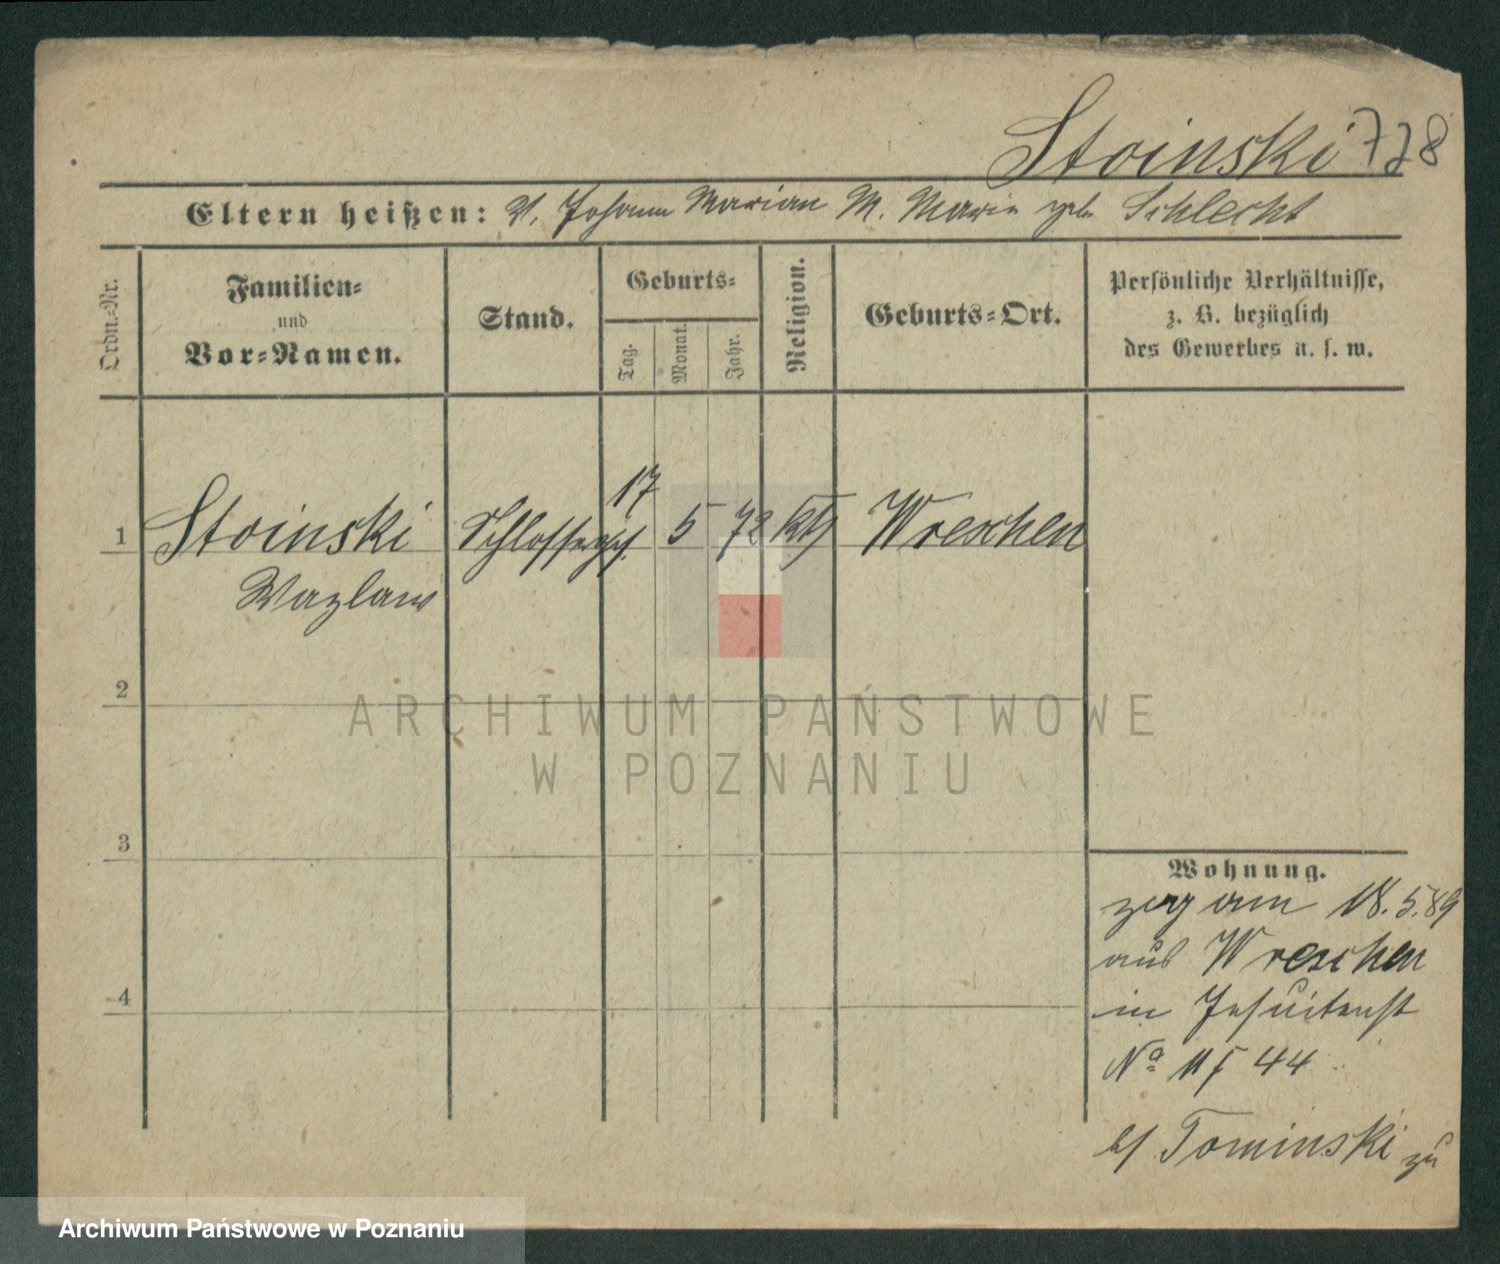 Stoinski 728
Eltern heißen: V. Johann Marian M. Marie geb. Schlecht
Ordn.-Nr.
Familien-
und
Vor-Namen.
Stand.
Geburts-
Tag.
Monat.
Jahr.
Religion.
Geburts-Ort.
Persönliche Verhältnisse,
z. B. bezüglich
des Gewerbes u. s. w.
1 Stoinski Schlosserges. 17 5 72 kth Wreschen
Wazlaw
2
3
4
Wohnung.
zog am 18.5.89
aus Wreschen
in Jesuitenst
No 11 44
b/ Tominski zu
ARCHIWUM PAŃSTWOWE
W POZNANIU
Archiwum Państwowe w Poznaniu